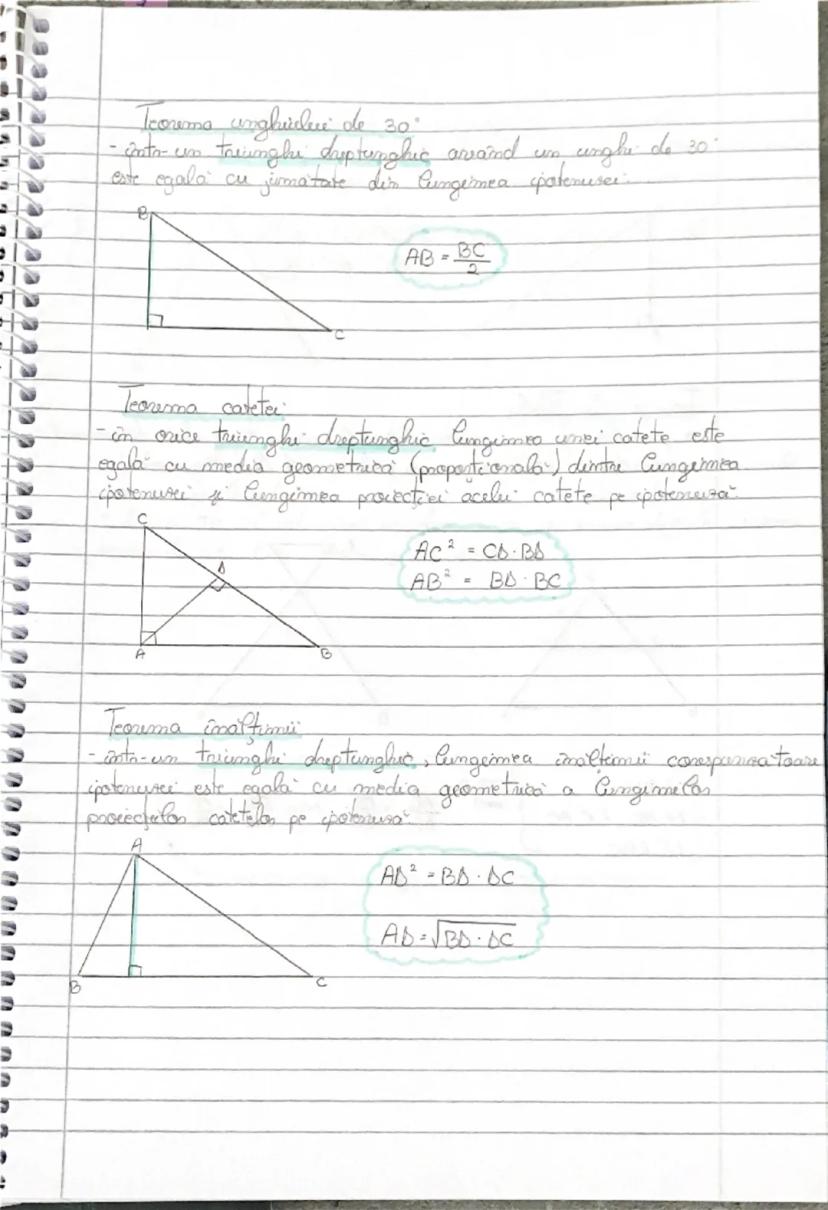 Teorema unghiului de 30°
- într-un triunghi dreptunghic având un unghi de 30°
este egală cu jumătate din lungimea ipotenusei.
B
AB = BC/2
C
Teorema catetei
- în orice triunghi dreptunghic lungimea unei catete este
egală cu media geometrică (proporțională) dintre lungimea
ipotenusei și lungimea proiecției acelei catete pe ipotenuză
C
AC² = CΔ · BΔ
Δ
AB² = BΔ · BC
A
B
Teorema înălțimii
- într-un triunghi dreptunghic, lungimea înălțimii corespunzătoare
ipotenusei este egală cu media geometrică a lungimilor
proiecțiilor catetelor pe ipotenusă
A
AΔ² = BΔ · ΔC
AΔ = √BΔ · ΔC
B
C